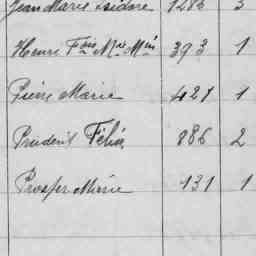 Jean Marie Isidore 1286 3
Henri Fois Mie Min 393 1
Pierre Marie 421 1
Prudent Félix 886 2
Prosper Marie 131 1